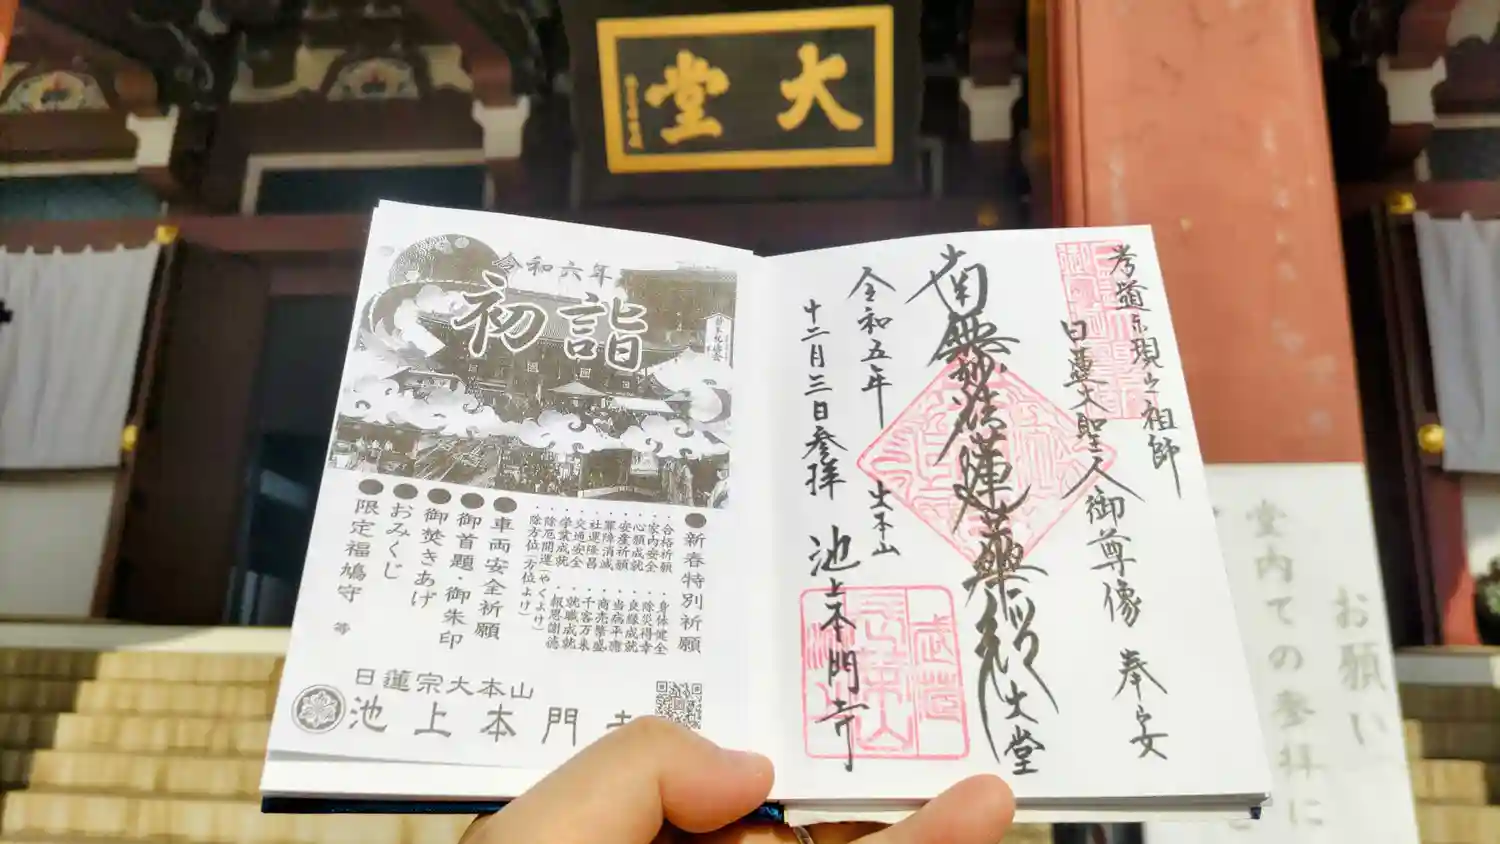 大堂
令和六年
初詣
新春特別祈願
合格祈願
家内安全
心願成就
安産祈願
罪障消滅
社運隆昌
交通安全
学業成就
除厄開運(やくよけ)
除方位(方位よけ)
身体健全
除災得幸
良縁成就
当病平癒
商売繁盛
千客万来
就職成就
報恩謝徳
車両安全祈願
御首題・御朱印
御焚きあげ
おみくじ
限定福鳩守 等
日蓮宗大本山
池上本門寺
日蓮大聖人御尊像 奉安
南無妙法蓮華経 大堂
令和五年
十二月三日参拝
大本山
池上本門寺
お願い
堂内での参拝に